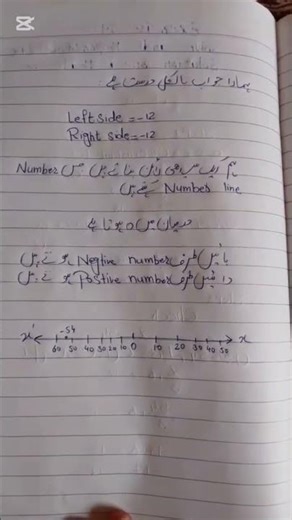 ہمارا جواب بالکل درست ہے
Left side = -12
Right side = -12
ہم ایک سیدھی لائن بناتے ہیں جس Number
Number line کہتے ہیں
درمیان میں 0 ہوتا ہے
بائیں طرف Negtive number ہوتے ہیں
دائیں طرف Postive number ہوتے ہیں
-54
x' 60 50 40 30 20 10 0 10 20 30 40 50 x